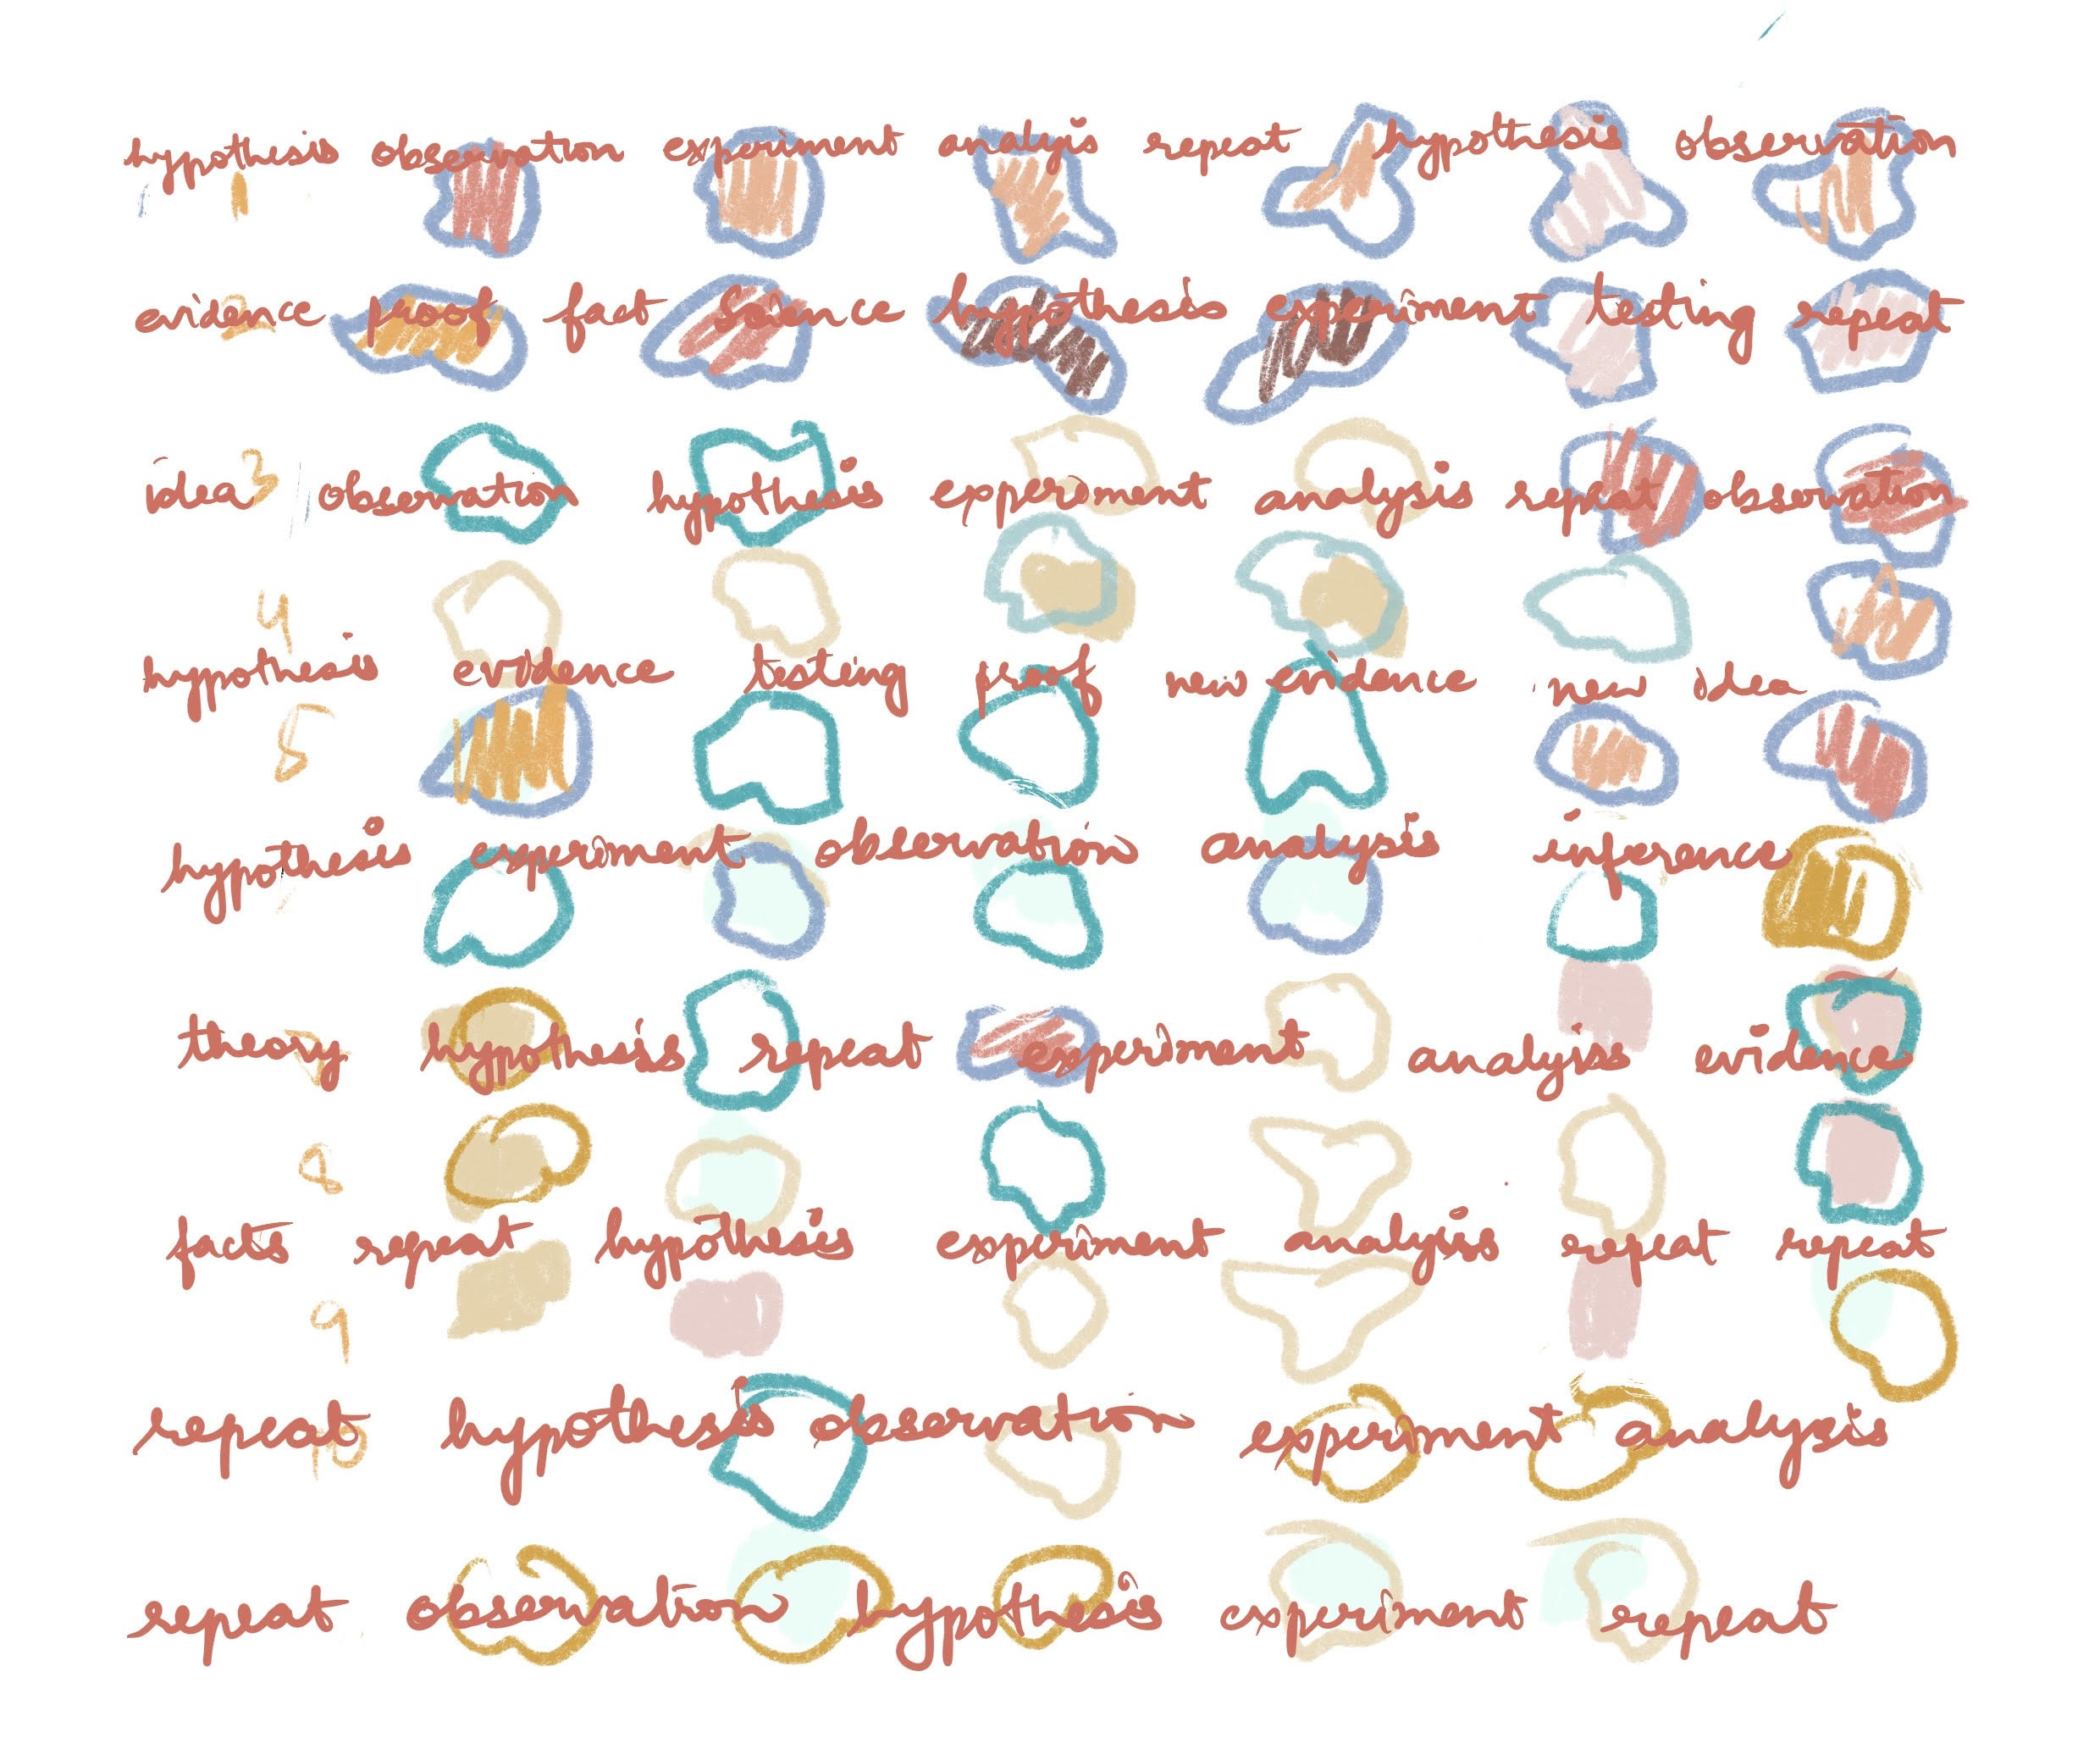 hypothesis observation experiment analyis repeat hypothesis observation
1
evidence proof fact science hypothesis experiment testing repeat
2
idea observation hypothesis experiment analysis repeat observation
3
4
hypothesis evidence testing proof new evidence new idea
5
hypothesis experiment observation analysis inference
theory hypothesis repeat experiment analyiss evidence
8
facts repeat hypothesis experiment analysis repeat repeat
9
repeat hypothesis observation experiment analysis
10
repeat observation hypothesis experiment repeat